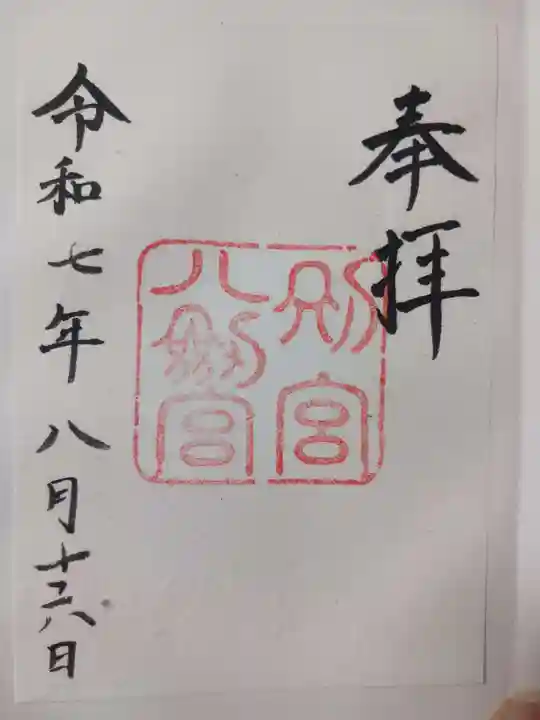 奉拝
別宮
八剱宮
令和七年八月十六日